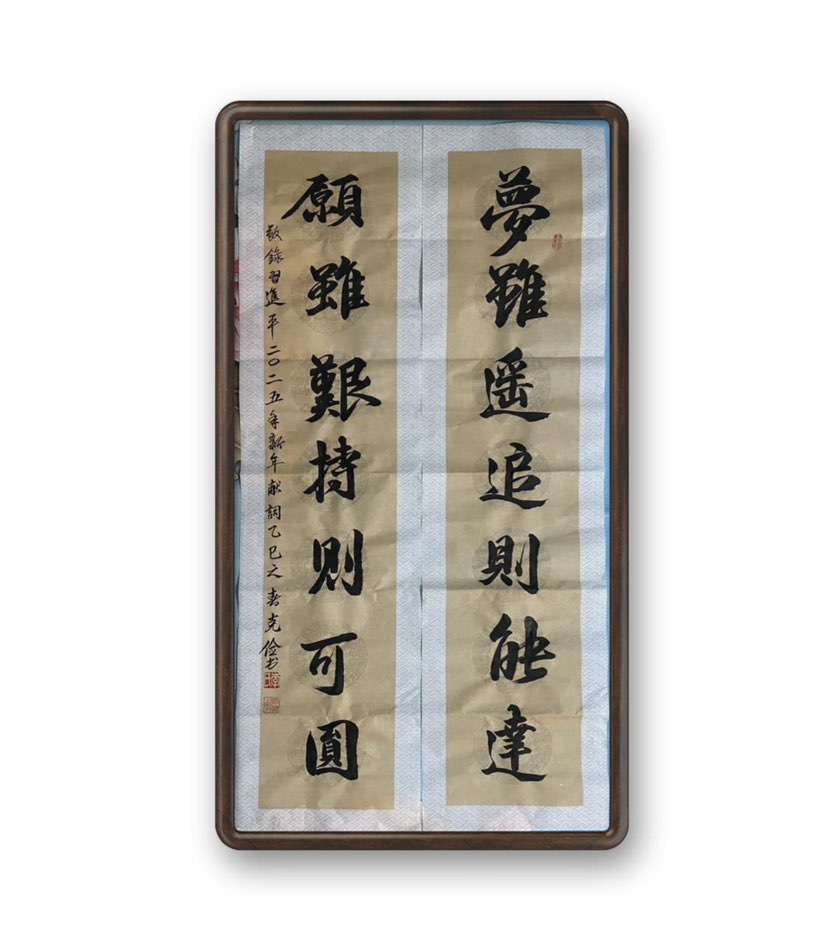 夢雖遥追則能達
願雖艱持则可圓
敬錄習進平二〇二五年新年献詞乙巳之春克俭书